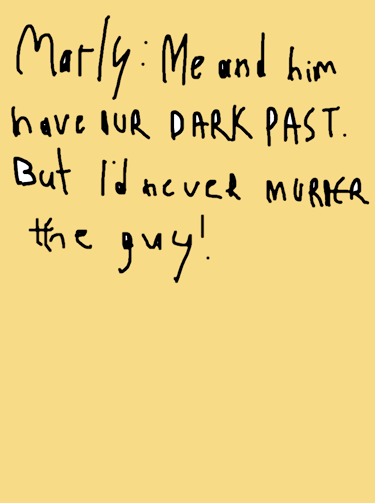 Marly: Me and him
have OUR DARK PAST.
But I'd never MURDER
the guy!